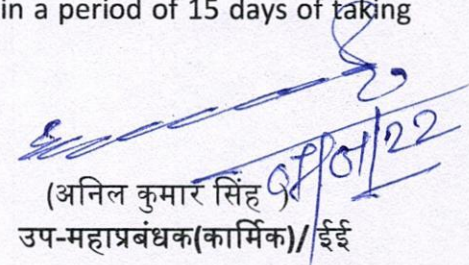 in a period of 15 days of taking
(अनिल कुमार सिंह )
उप-महाप्रबंधक(कार्मिक)/ ईई